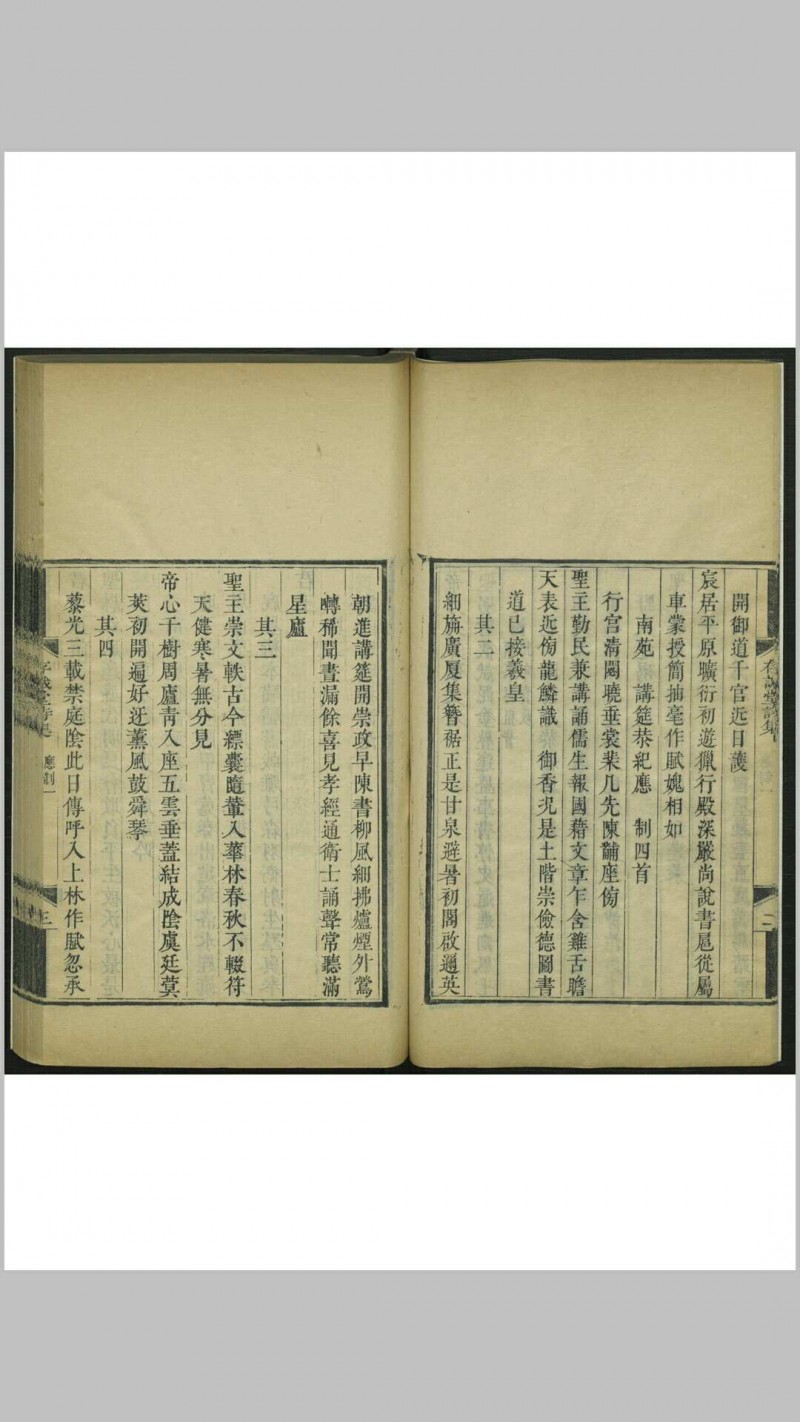 開御道千官近日護
宸居平原曠衍初遊獵行殿深嚴尚說書扈從屬
車蒙授簡抽毫作賦媿相如
南苑　講筵恭紀應　制四首
行宮清閟曉垂裳棐几先陳黼座傍
聖主勤民兼講誦儒生報國藉文章乍含雞舌瞻
天表近傍龍鱗識　御香況是土階崇儉德圖書
道已接羲皇
其二
細旃廣厦集簪裾正是甘泉避暑初閣啟邇英
二
朝進講筵開崇政早陳書柳風細拂爐煙外鶯
囀稀聞晝漏餘喜見孝經通衛士誦聲常聽滿
星廬
其三
聖主崇文軼古今縹囊隨輦入華林春秋不輟符
天健寒暑無分見
帝心千樹周廬靑入座五雲垂蓋結成陰虞廷蓂
莢初開遍好迓薰風鼓舜琴
其四
藜光三載禁庭陰此日傳呼入上林作賦忽承
應制一
三